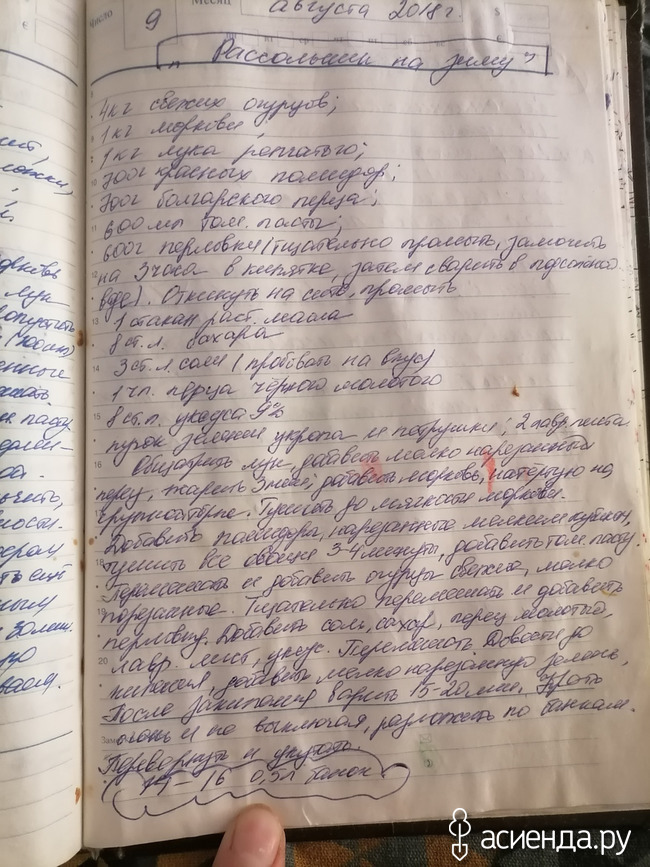 Число
9
Месяц
Августа 2018г.
"Рассольник на зиму"
4кг свежих огурцов;
1кг моркови;
1кг лука репчатого;
700г красных помидор;
700г болгарского перца;
600мл том. пасты;
600г перловки (тщательно промыть, замочить
на 3 часа в кипятке, затем сварить в подсоленой
воде). Откинуть на сито, промыть
1 стакан раст. масла
8 ст. л. сахара
3 ст. л. соли (пробовать на вкус)
1 чл. перца чёрного молотого
8 ст. л. уксуса 9%
пучок зелени укропа и петрушки; 2 лавр. листа
Обжарить лук, добавить мелко нарезанный
перец, жарить 3 мин, добавить морковь, натертую на
крупной терке. Тушить до мягкости моркови.
Добавить помидоры, нарезанные мелким кубиком,
тушить все овощи 3-4 минуты, добавить том. пасту.
Перемешать и добавить огурцы свежие, мелко
порезанные. Тщательно перемешать и добавить
перловку. Добавить соль, сахар, перец молотый,
лавр. лист, уксус. Перемешать. Довести до
кипения, добавить мелко нарезанную зелень,
После закипания варить 15-20 мин.
огонь и не выключая, разложить по банкам.
Перевернуть и укутать.
16 0,5л банок
асиенда.ру